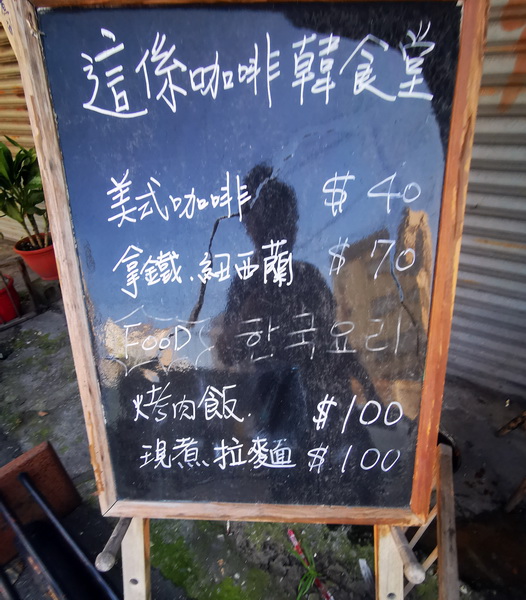 這係咖啡韓食堂
美式咖啡 $ 40
拿鐵、紐西蘭 $ 70
FOOD 한국요리
烤肉飯. $100
現煮、拉麵 $100